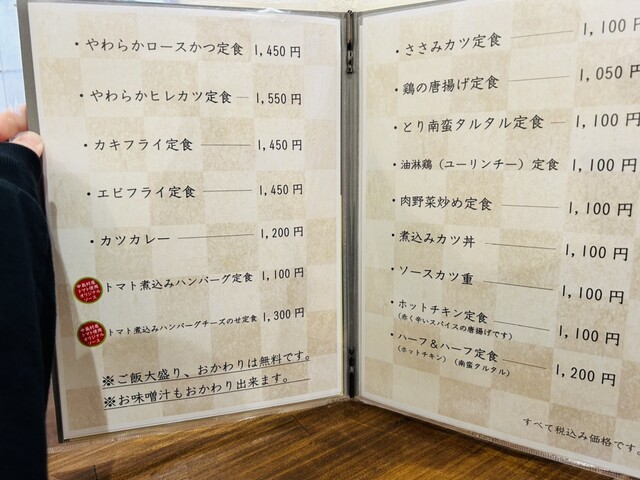 ・やわらかロースかつ定食 1,450円
・やわらかヒレカツ定食 1,550円
・カキフライ定食 1,450円
・エビフライ定食 1,450円
・カツカレー 1,200円
中島村産
トマト使用
オリジナル
ソース
トマト煮込みハンバーグ定食 1,100円
中島村産
トマト使用
オリジナル
ソース
トマト煮込みハンバーグチーズのせ定食 1,300円
※ご飯大盛り、おかわりは無料です。
※お味噌汁もおかわり出来ます。
・ささみカツ定食 1,100円
・鶏の唐揚げ定食 1,050円
・とり南蛮タルタル定食 1,100円
・油淋鶏（ユーリンチー）定食 1,100円
・肉野菜炒め定食 1,100円
・煮込みカツ丼 1,100円
・ソースカツ重 1,100円
・ホットチキン定食 1,100円
（赤く辛いスパイスの唐揚げです）
・ハーフ＆ハーフ定食 1,200円
（ホットチキン）（南蛮タルタル）
すべて税込み価格です。